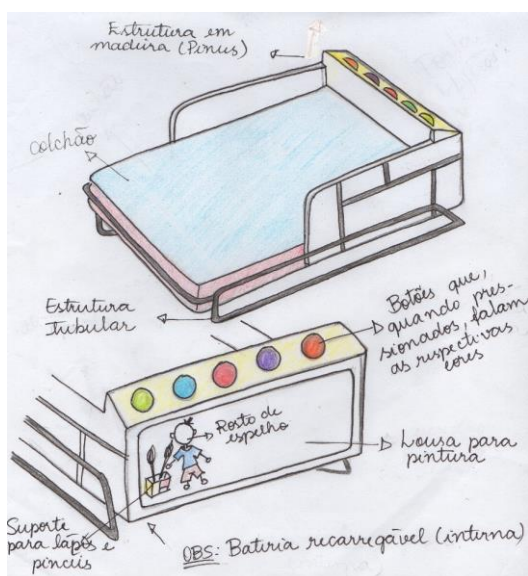 Estrutura em
madeira (Pinus)
colchão
Estrutura
tubular
Botões que,
quando pres-
sionados, falam
as respectivas
cores
Rosto de
espelho
Lousa para
pintura
Suporte
para lápis e
pincéis
OBS: Bateria recarregável (interna)